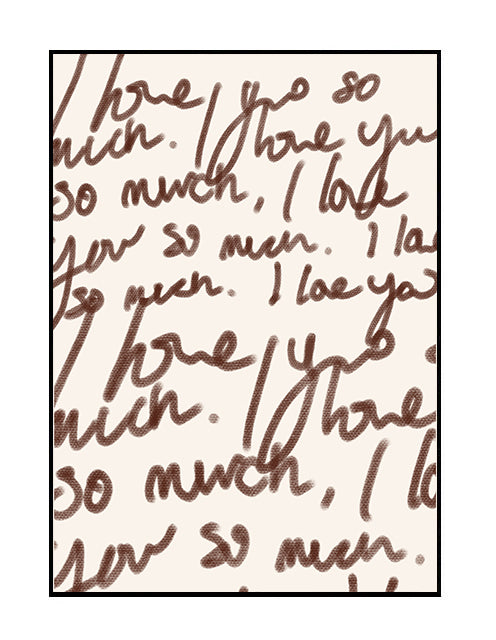 I love you so
much. I love you
so much, I love
you so much. I lo
so much. I love you
I love you so
much. I love
so much, I lo
you so much.